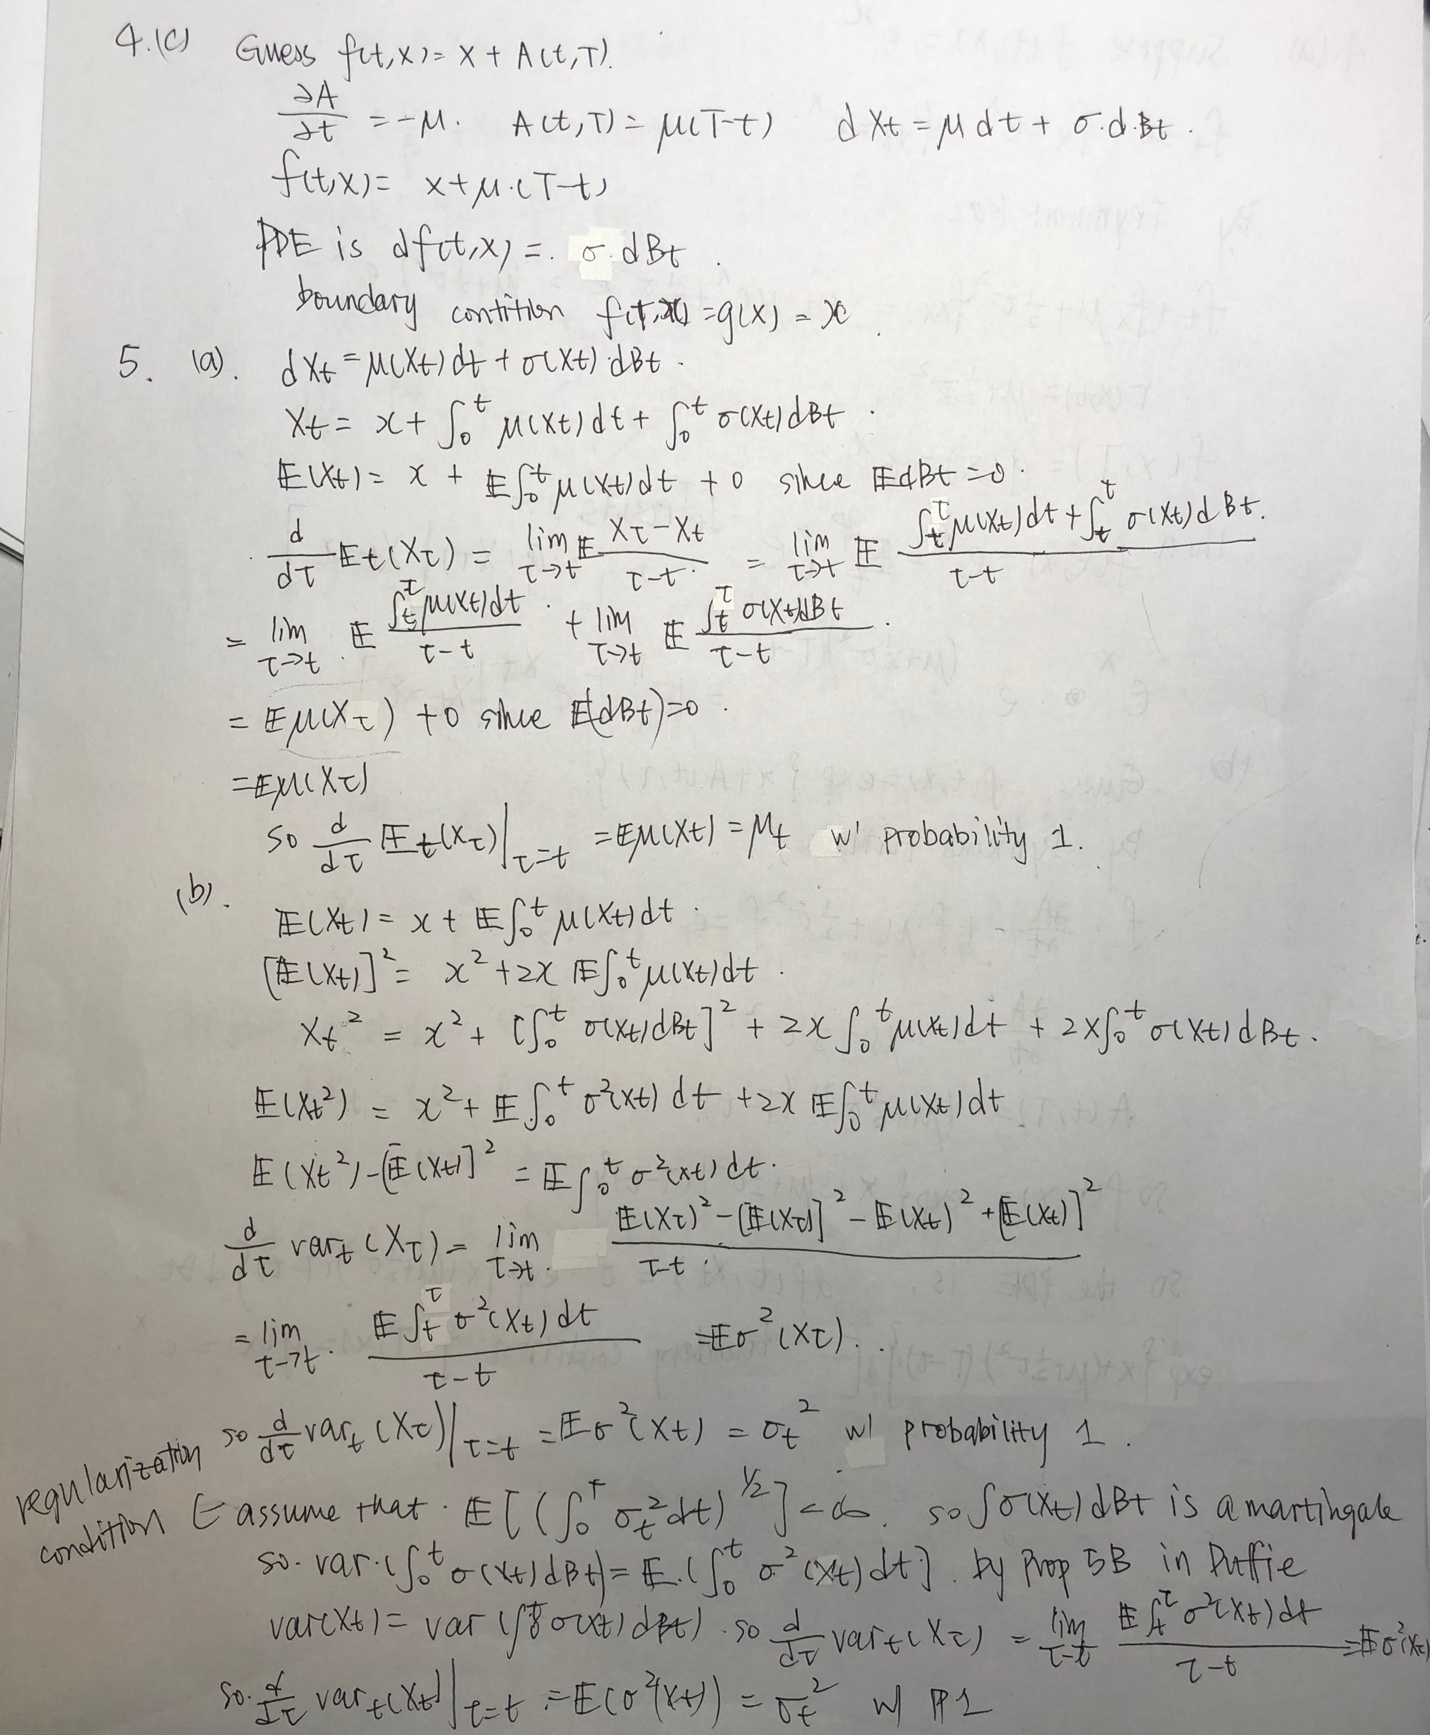 4.(c) Guess f(t,x)= x + A(t,T).
∂A/∂t = -μ. A(t,T) = μ(T-t) dXt = μdt + σ.dBt.
f(t,x)= x+μ.(T-t)
PDE is df(t,x) =. σ.dBt.
boundary contition f(T,x) = g(x) = x.
5. (a). dXt = μ(Xt)dt + σ(Xt).dBt.
Xt = x + ∫₀ᵗ μ(Xt)dt + ∫₀ᵗ σ(Xt)dBt.
𝔼(Xt) = x + 𝔼∫₀ᵗ μ(Xt)dt + 0 since 𝔼dBt = 0.
d/dτ 𝔼t(Xτ) = lim_{τ→t} 𝔼 (Xτ-Xt)/(τ-t) = lim_{τ→t} 𝔼 (∫_t^τ μ(Xt)dt + ∫_t^τ σ(Xt)dBt.)/(τ-t)
= lim_{τ→t}. 𝔼 (∫_t^τ μ(Xt)dt)/(τ-t) + lim_{τ→t} 𝔼 (∫_t^τ σ(Xt)dBt)/(τ-t).
= 𝔼μ(Xτ) + 0 since 𝔼(dBt)=0.
= 𝔼μ(Xτ)
so d/dτ 𝔼t(Xτ)|_{τ=t} = 𝔼μ(Xt) = μt w/ probability 1.
(b). 𝔼(Xt) = x + 𝔼∫₀ᵗ μ(Xt)dt.
[𝔼(Xt)]² = x² + 2x 𝔼∫₀ᵗ μ(Xt)dt.
Xt² = x² + [∫₀ᵗ σ(Xt)dBt]² + 2x∫₀ᵗ μ(Xt)dt + 2x∫₀ᵗ σ(Xt)dBt.
𝔼(Xt²) = x² + 𝔼∫₀ᵗ σ²(Xt)dt + 2x 𝔼∫₀ᵗ μ(Xt)dt
𝔼(Xt²)-[𝔼(Xt)]² = 𝔼∫₀ᵗ σ²(Xt)dt.
d/dτ vart(Xτ) = lim_{τ→t}. (𝔼(Xτ)² - [𝔼(Xτ)]² - 𝔼(Xt)² + [𝔼(Xt)]²)/(τ-t).
= lim_{τ→t}. (𝔼∫_t^τ σ²(Xt)dt)/(τ-t) = 𝔼σ²(Xτ)..
so d/dτ vart(Xτ)|_{τ=t} = 𝔼σ²(Xt) = σt² w/ probability 1.
regularization condition
assume that. 𝔼[(∫₀ᵀ σt²dt)^{1/2}] < ∞. so ∫σ(Xt)dBt is a martingale
so. var.(∫₀ᵗ σ(Xt)dBt) = 𝔼.(∫₀ᵗ σ²(Xt)dt]. by Prop 5B in Duffie
var(Xt) = var(∫₀ᵗ σ(Xt)dBt). so d/dτ vart(Xτ) = lim_{τ→t} (𝔼∫_t^τ σ²(Xt)dt)/(τ-t) = 𝔼σ²(Xτ)
so. d/dτ vart(Xt)|_{τ=t} = 𝔼(σ²(Xt)) = σt² w/ ℙ1